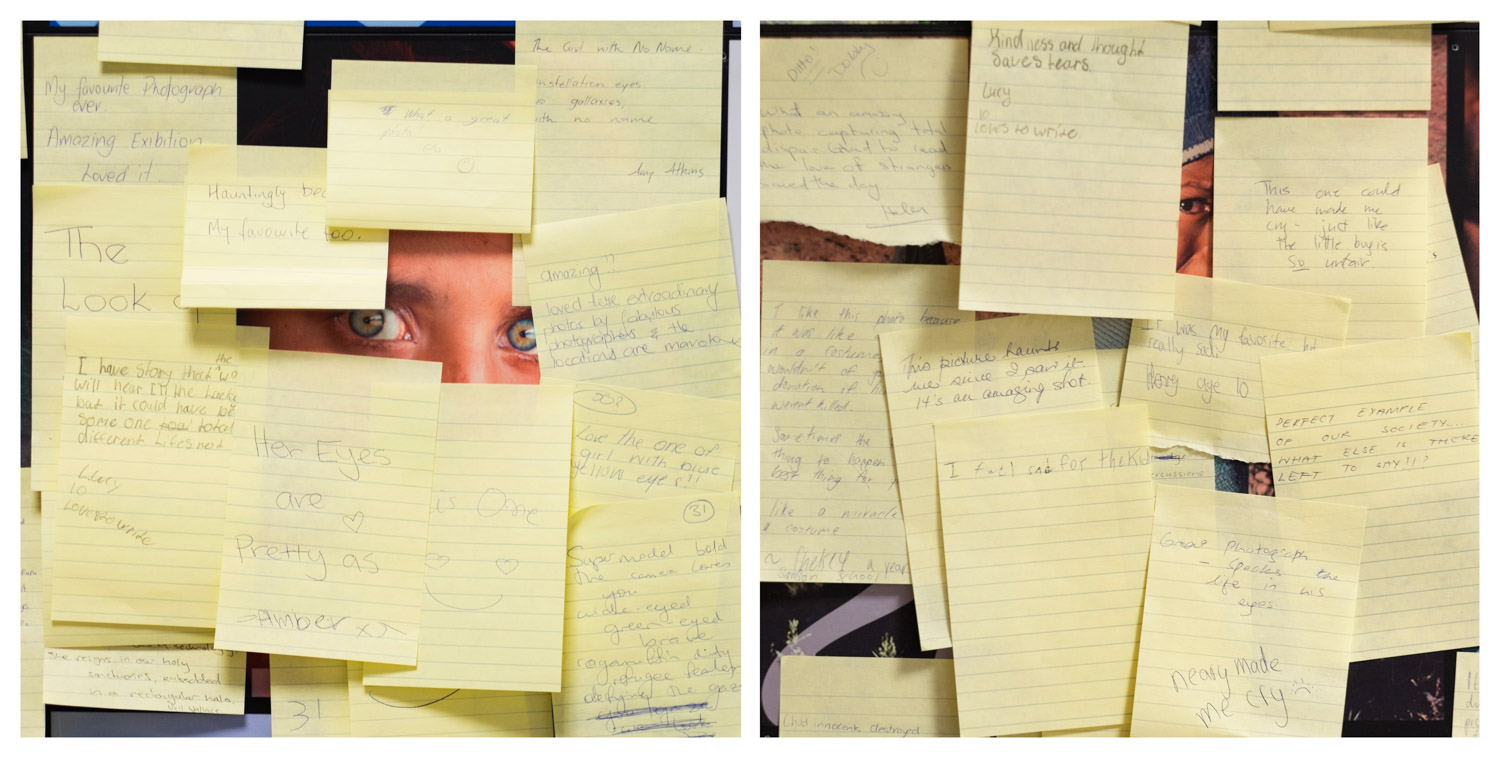 My favourite Photograph
ever.
Amazing Exibition
Loved it.
Hauntingly
My favourite too.
What a great
photo
The Girl with No Name
constellation eyes
galaxies,
with no name
Amy Atkins
The
Look
amazing!!
loved these extraodinary
photos by fabulous
photographers & the
locations are
I have story that the
will hear I'M the lucky
but it could have be
some one total
different lifes not
Lucy
10
Loves to write
Her Eyes
are
Pretty as
~Amber xx
is One
Love the one of
girl with blue
yellow eyes!!
31
Supermodel bold
the camera loves
you
wide-eyed
green-eyed
brave
dirty
refugee
defying the gaze
She reigns in our holy
embedded
in a rectangular halo.
31
DITTO! Debby
What an amazing
photo capturing total
dispair and to read
the love of strangers
saved the day
Helen
Kindness and thought
saves tears.
Lucy
10
loves to write
This one could
have made me
cry - just like
the little boy is
So unfair
I like this photo because
it was like
in a costume
wouldn't of
donation if
weren't killed.
Sometimes the
thing to happen
best thing for
like a miracle
costume
a year
school
This picture haunts
me since I saw it.
It's an amazing shot.
It was my favorite but
really sad.
Henry age 10
PERFECT EXAMPLE
OF OUR SOCIETY...
WHAT ELSE IS THERE
LEFT TO SAY!!?
I feel sad for the kid
Great photograph
- speaks the
life in his
eyes
neary made
me cry
Child innocents destroyed